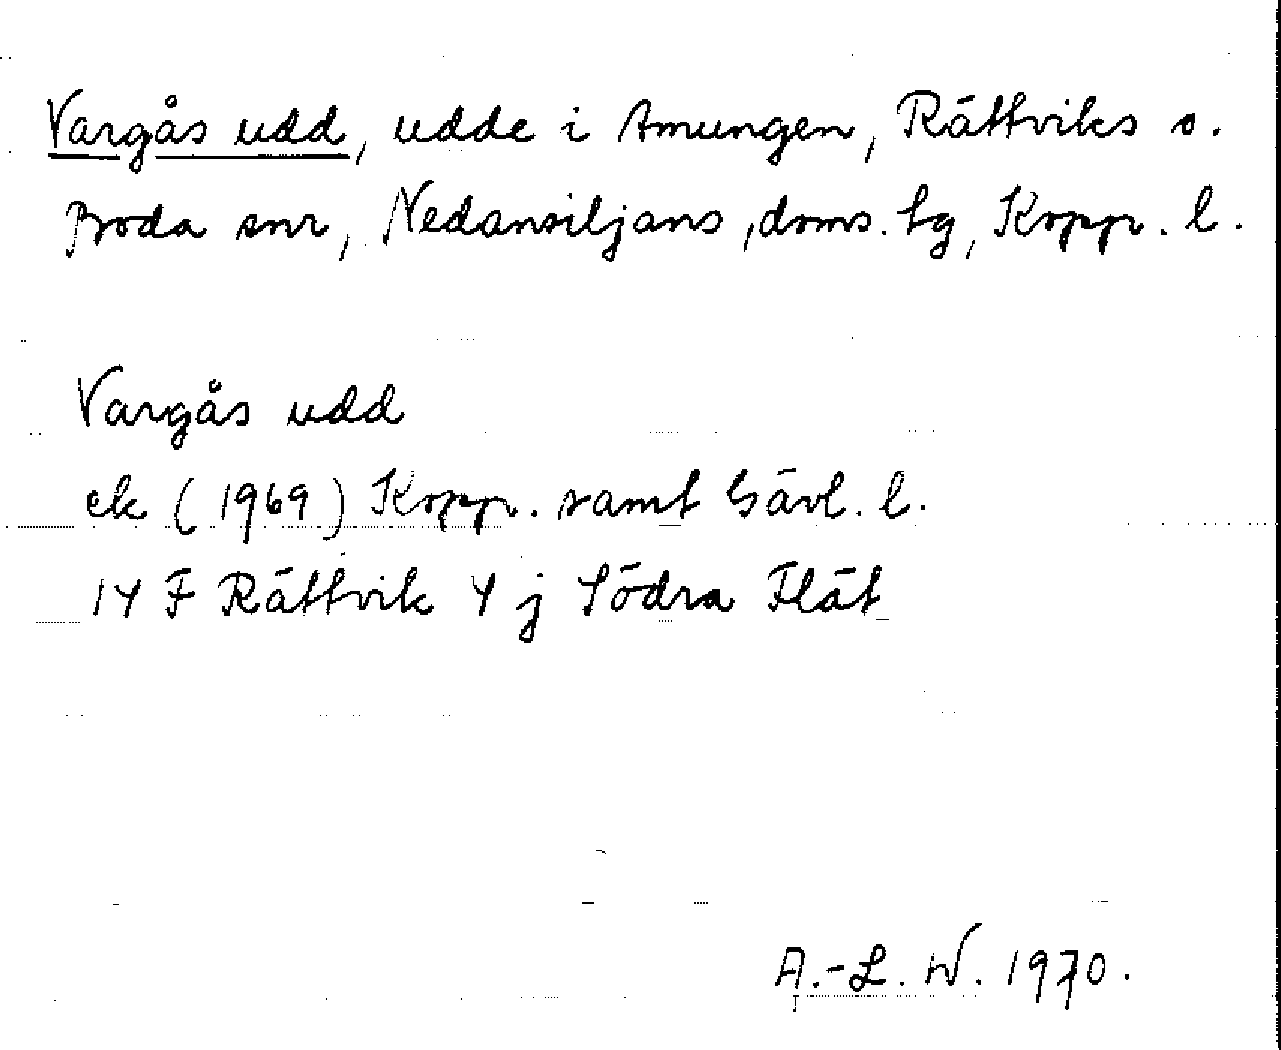 Vargås udd, udde i Amungen, Rättviks s.
Boda snr, Nedansiljans, doms. tg, Kopp. l.
Vargås udd
ek (1969) Kopp. samt Gävl. l.
14 F Rättvik 4 j Södra Flät
A.-L. W. 1970.